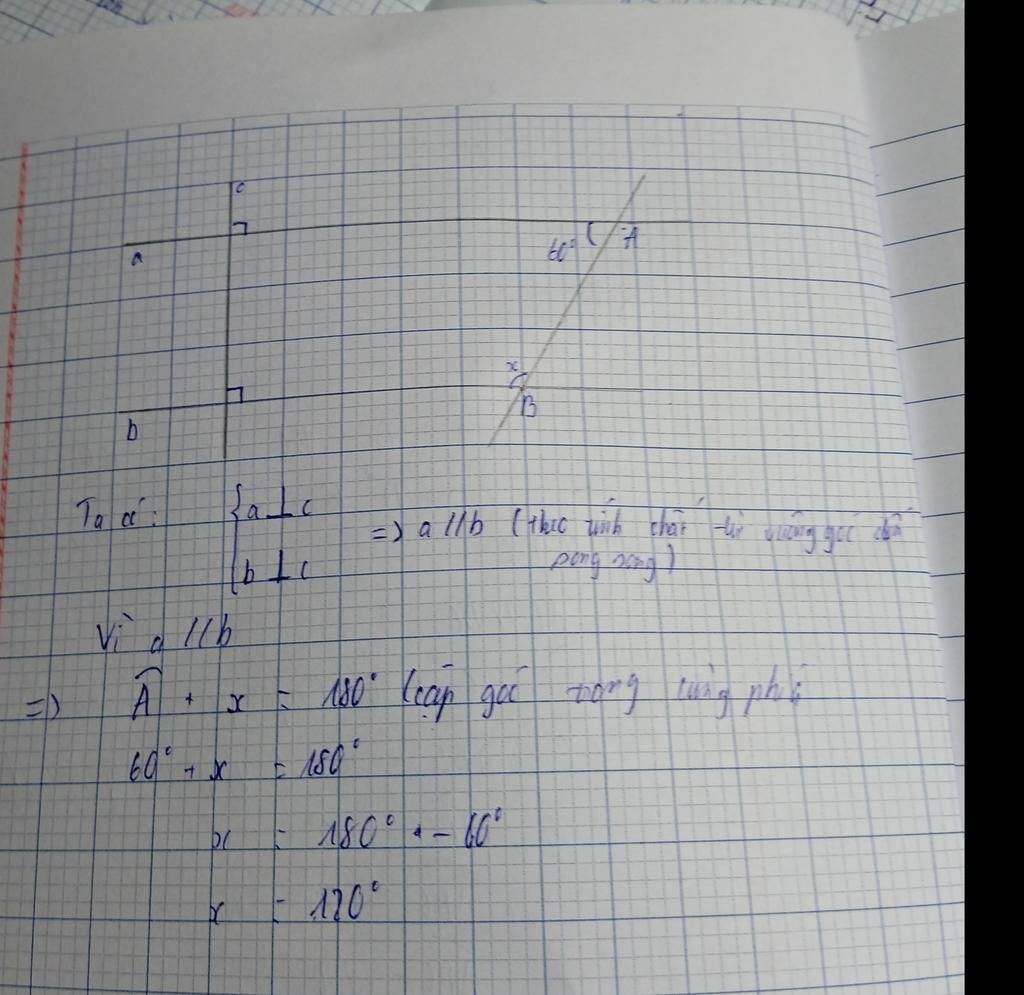 c
a
60° A
x
B
b
Ta có: { a ⊥ c
=> a // b ( tính chất từ vuông góc đến
song song )
b ⊥ c
Vì a // b
=> Â + x = 180° (cặp góc trong cùng phía
60° + x = 180°
x = 180° - 60°
x = 120°